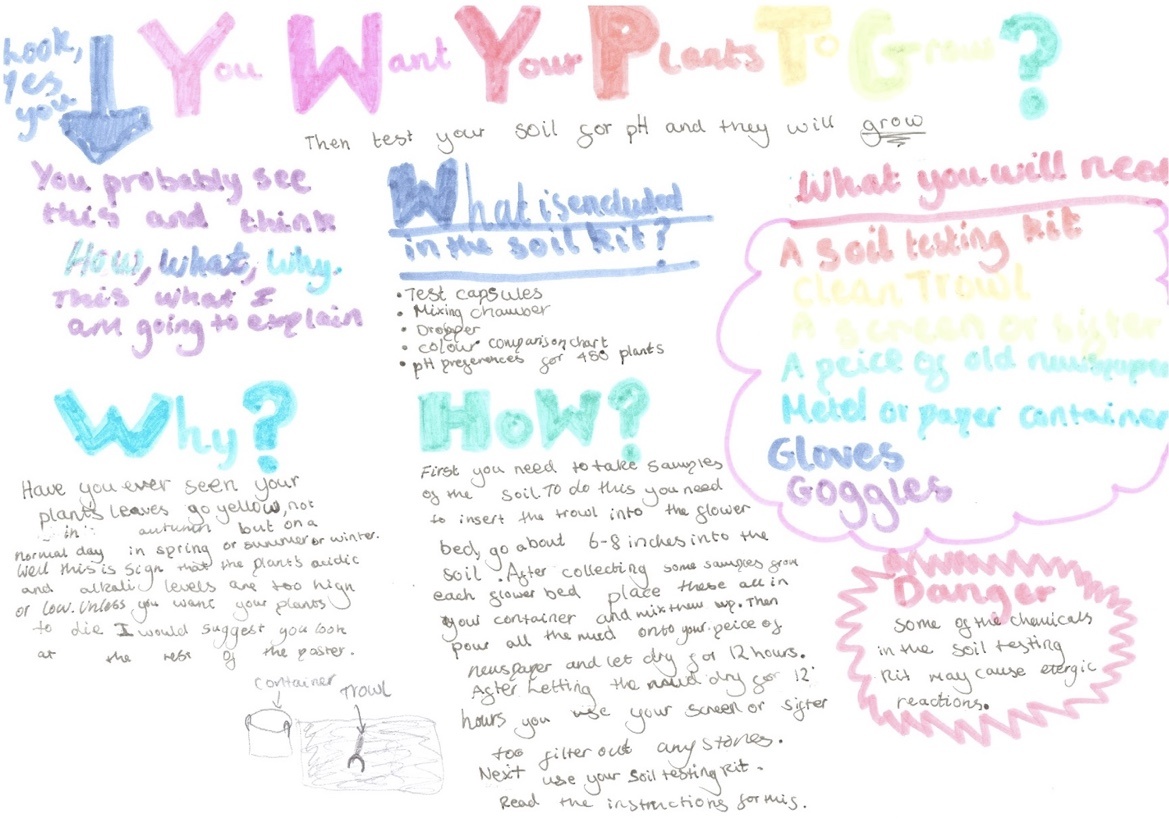 Look,
yes
you
You Want Your Plants To Grow?
Then test your soil for pH and they will grow
You probably see
this and think
How, what, why.
This what I
am going to explain
What is encluded
in the soil kit?
• Test capsules
• Mixing chamber
• Dropper
• colour comparison chart
• pH preferences for 450 plants
What you will need
A soil testing kit
Clean Trowl
A screen or sifter
A peice of old newspaper
Metel or paper container
Gloves
Goggles
Why?
Have you ever seen your
plants leaves go yellow, not
in autumn but on a
normal day in spring or summer or winter.
Well this is sign that the plants acidic
and alkali levels are too high
or low. Unless you want your plants
to die I would suggest you look
at the rest of the poster.
container
Trowl
How?
First you need to take samples
of the soil TO do this you need
to insert the trowl into the flower
bed, go about 6-8 inches into the
soil. After collecting some samples from
each flower bed place these all in
your container and mix them up. Then
pour all the mud onto your peice of
newspaper and let dry for 12 hours.
After letting the mud dry for 12
hours you use your screen or sifter
too filter out any stones.
Next use your soil testing kit.
Read the instructions for this.
Danger
Some of the chemicals
in the soil testing
kit may cause elergic
reactions.